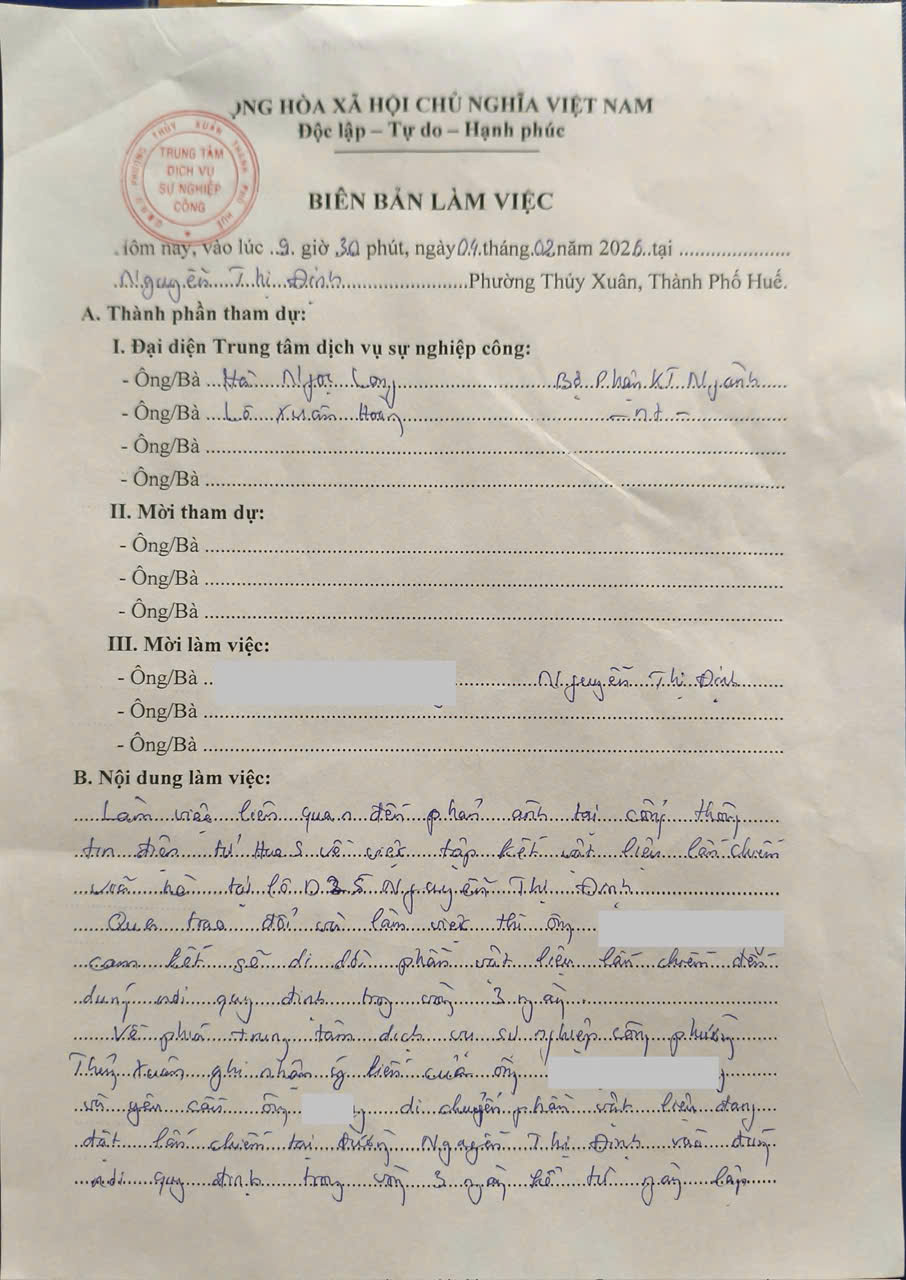 ỘNG HÒA XÃ HỘI CHỦ NGHĨA VIỆT NAM
Độc lập – Tự do – Hạnh phúc
U.B.N.D PHƯỜNG THỦY XUÂN THÀNH PHỐ HUẾ
TRUNG TÂM
DỊCH VỤ
SỰ NGHIỆP
CÔNG
BIÊN BẢN LÀM VIỆC
Hôm nay, vào lúc 9 giờ 30 phút, ngày 04 tháng 02 năm 2026 tại
Nguyễn Thị Định Phường Thủy Xuân, Thành Phố Huế.
A. Thành phần tham dự:
I. Đại diện Trung tâm dịch vụ sự nghiệp công:
- Ông/Bà Ngọc Long Bộ phận KT Ngành
- Ông/Bà Lê Xuân Hoàng – nt –
- Ông/Bà
- Ông/Bà
II. Mời tham dự:
- Ông/Bà
- Ông/Bà
- Ông/Bà
III. Mời làm việc:
- Ông/Bà Nguyễn Thị Định
- Ông/Bà
- Ông/Bà
B. Nội dung làm việc:
Làm việc liên quan đến phản ánh tại cổng thông
tin điện tử Hue S về việc tập kết vật liệu lấn chiếm
vỉa hè tại lô Nguyễn Thị Định
Qua trao đổi và làm việc thì ông
cam kết sẽ di dời phần vật liệu lấn chiếm đến
đúng nơi quy định trong vòng 3 ngày.
Về phía trung tâm dịch vụ sự nghiệp công phường
Thủy Xuân ghi nhận ý kiến của ông
và yêu cầu ông di chuyển phần vật liệu đang
đặt lấn chiếm tại đường Nguyễn Thị Định vào đúng
nơi quy định trong vòng 3 ngày kể từ ngày lập